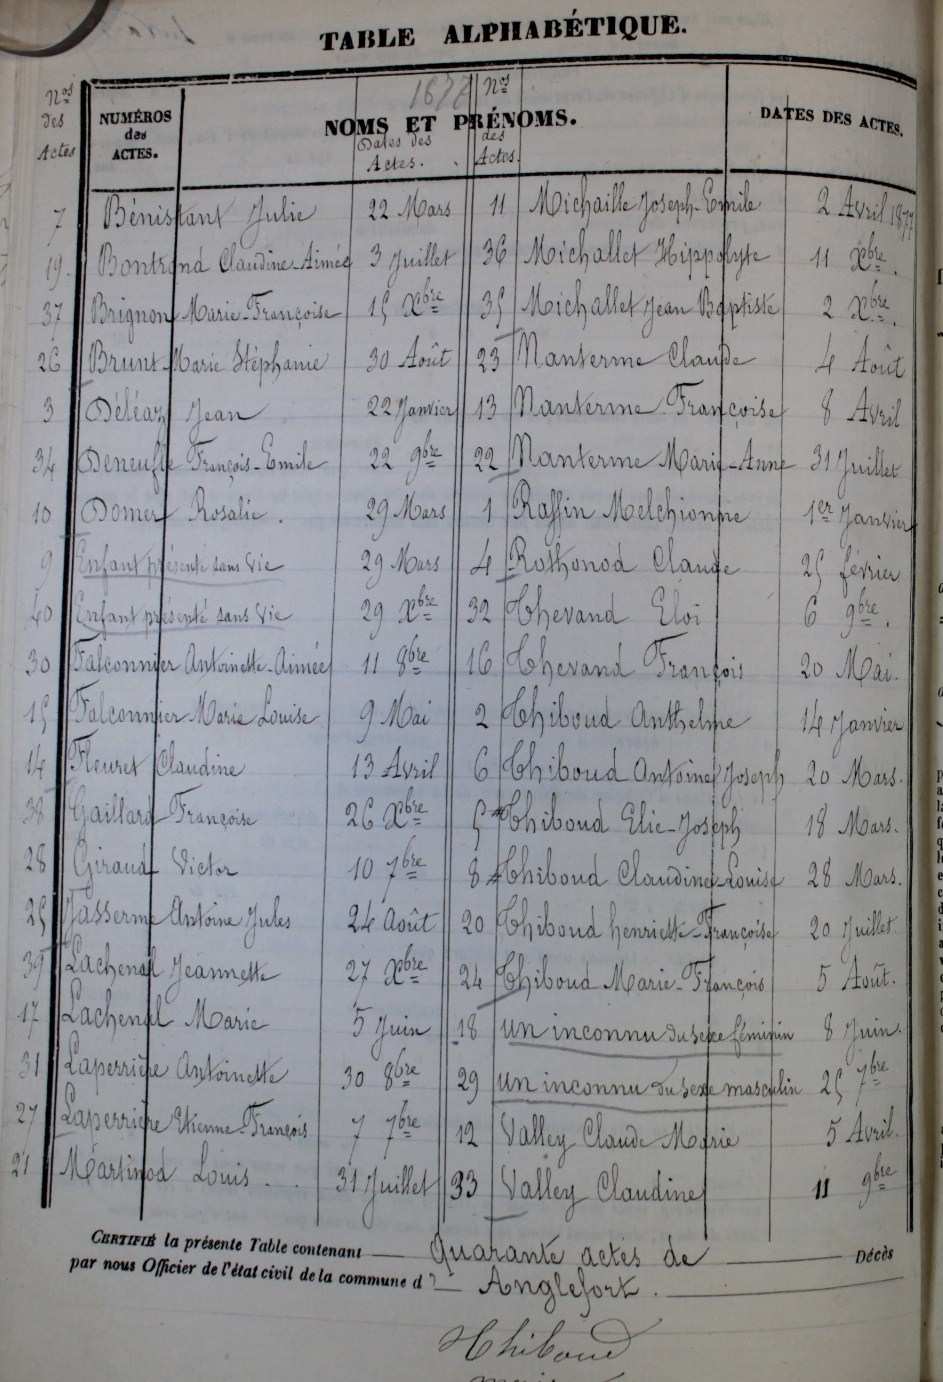 TABLE ALPHABÉTIQUE.
1877
Nos des Actes
NUMÉROS des ACTES.
NOMS ET PRÉNOMS.
Dates des Actes.
Nos des Actes.
DATES DES ACTES.
7 Bénistant Julie 22 Mars 11 Michaille Joseph-Emile 2 Avril 1877
19. Bontrond Claudine-Aimée 3 Juillet 36 Michallet Hippolyte 11 Xbre.
37 Brignon Marie-Françoise 15 Xbre 35 Michallet Jean Baptiste 2 Xbre.
26 Brunt Marie Stéphanie 30 Août 23 Nanterme Claude 4 Août
3 Déléaz Jean 22 Janvier 13 Nanterme Françoise 8 Avril
34 Deneufle François-Emile 22 9bre 22 Nanterme Marie-Anne 31 Juillet
10 Domer Rosalie. 29 Mars 1 Raffin Melchionne 1er Janvier
9 Enfant présenté sans vie 29 Mars 4 Rothonod Claude 25 février
40 Enfant présenté sans vie 29 Xbre 32 Thevand Eloi 6 9bre.
30 Falconnier Antoinette-Aimée 11 8bre 16 Thevand François 20 Mai.
15 Falconnier Marie Louise 9 Mai 2 Thiboud Anthelme 14 Janvier
14 Fleuret Claudine 13 Avril 6 Thiboud Antoine Joseph 20 Mars.
38 Gaillard Françoise 26 Xbre 5 Thiboud Elie-Joseph 18 Mars.
28 Giraud Victor 10 7bre 8 Thiboud Claudine-Louise 28 Mars.
25 Jasserme Antoine Jules 24 Août 20 Thiboud henriette-Françoise 20 Juillet.
39 Lachenal Jeannette 27 Xbre 24 Thiboud Marie-François 5 Août.
17 Lachenal Marie 5 Juin 18 un inconnu du sexe féminin 8 Juin.
31 Laperrière Antoinette 30 8bre 29 un inconnu du sexe masculin 25 7bre
27 Laperrière Etienne-François 7 7bre 12 Valley Claude Marie 5 Avril.
21 Martinod Louis. 31 Juillet 33 Valley Claudine 11 9bre
CERTIFIÉ la présente Table contenant Quarante actes de Décès
par nous Officier de l'état civil de la commune d' Anglefort.
Thiboud